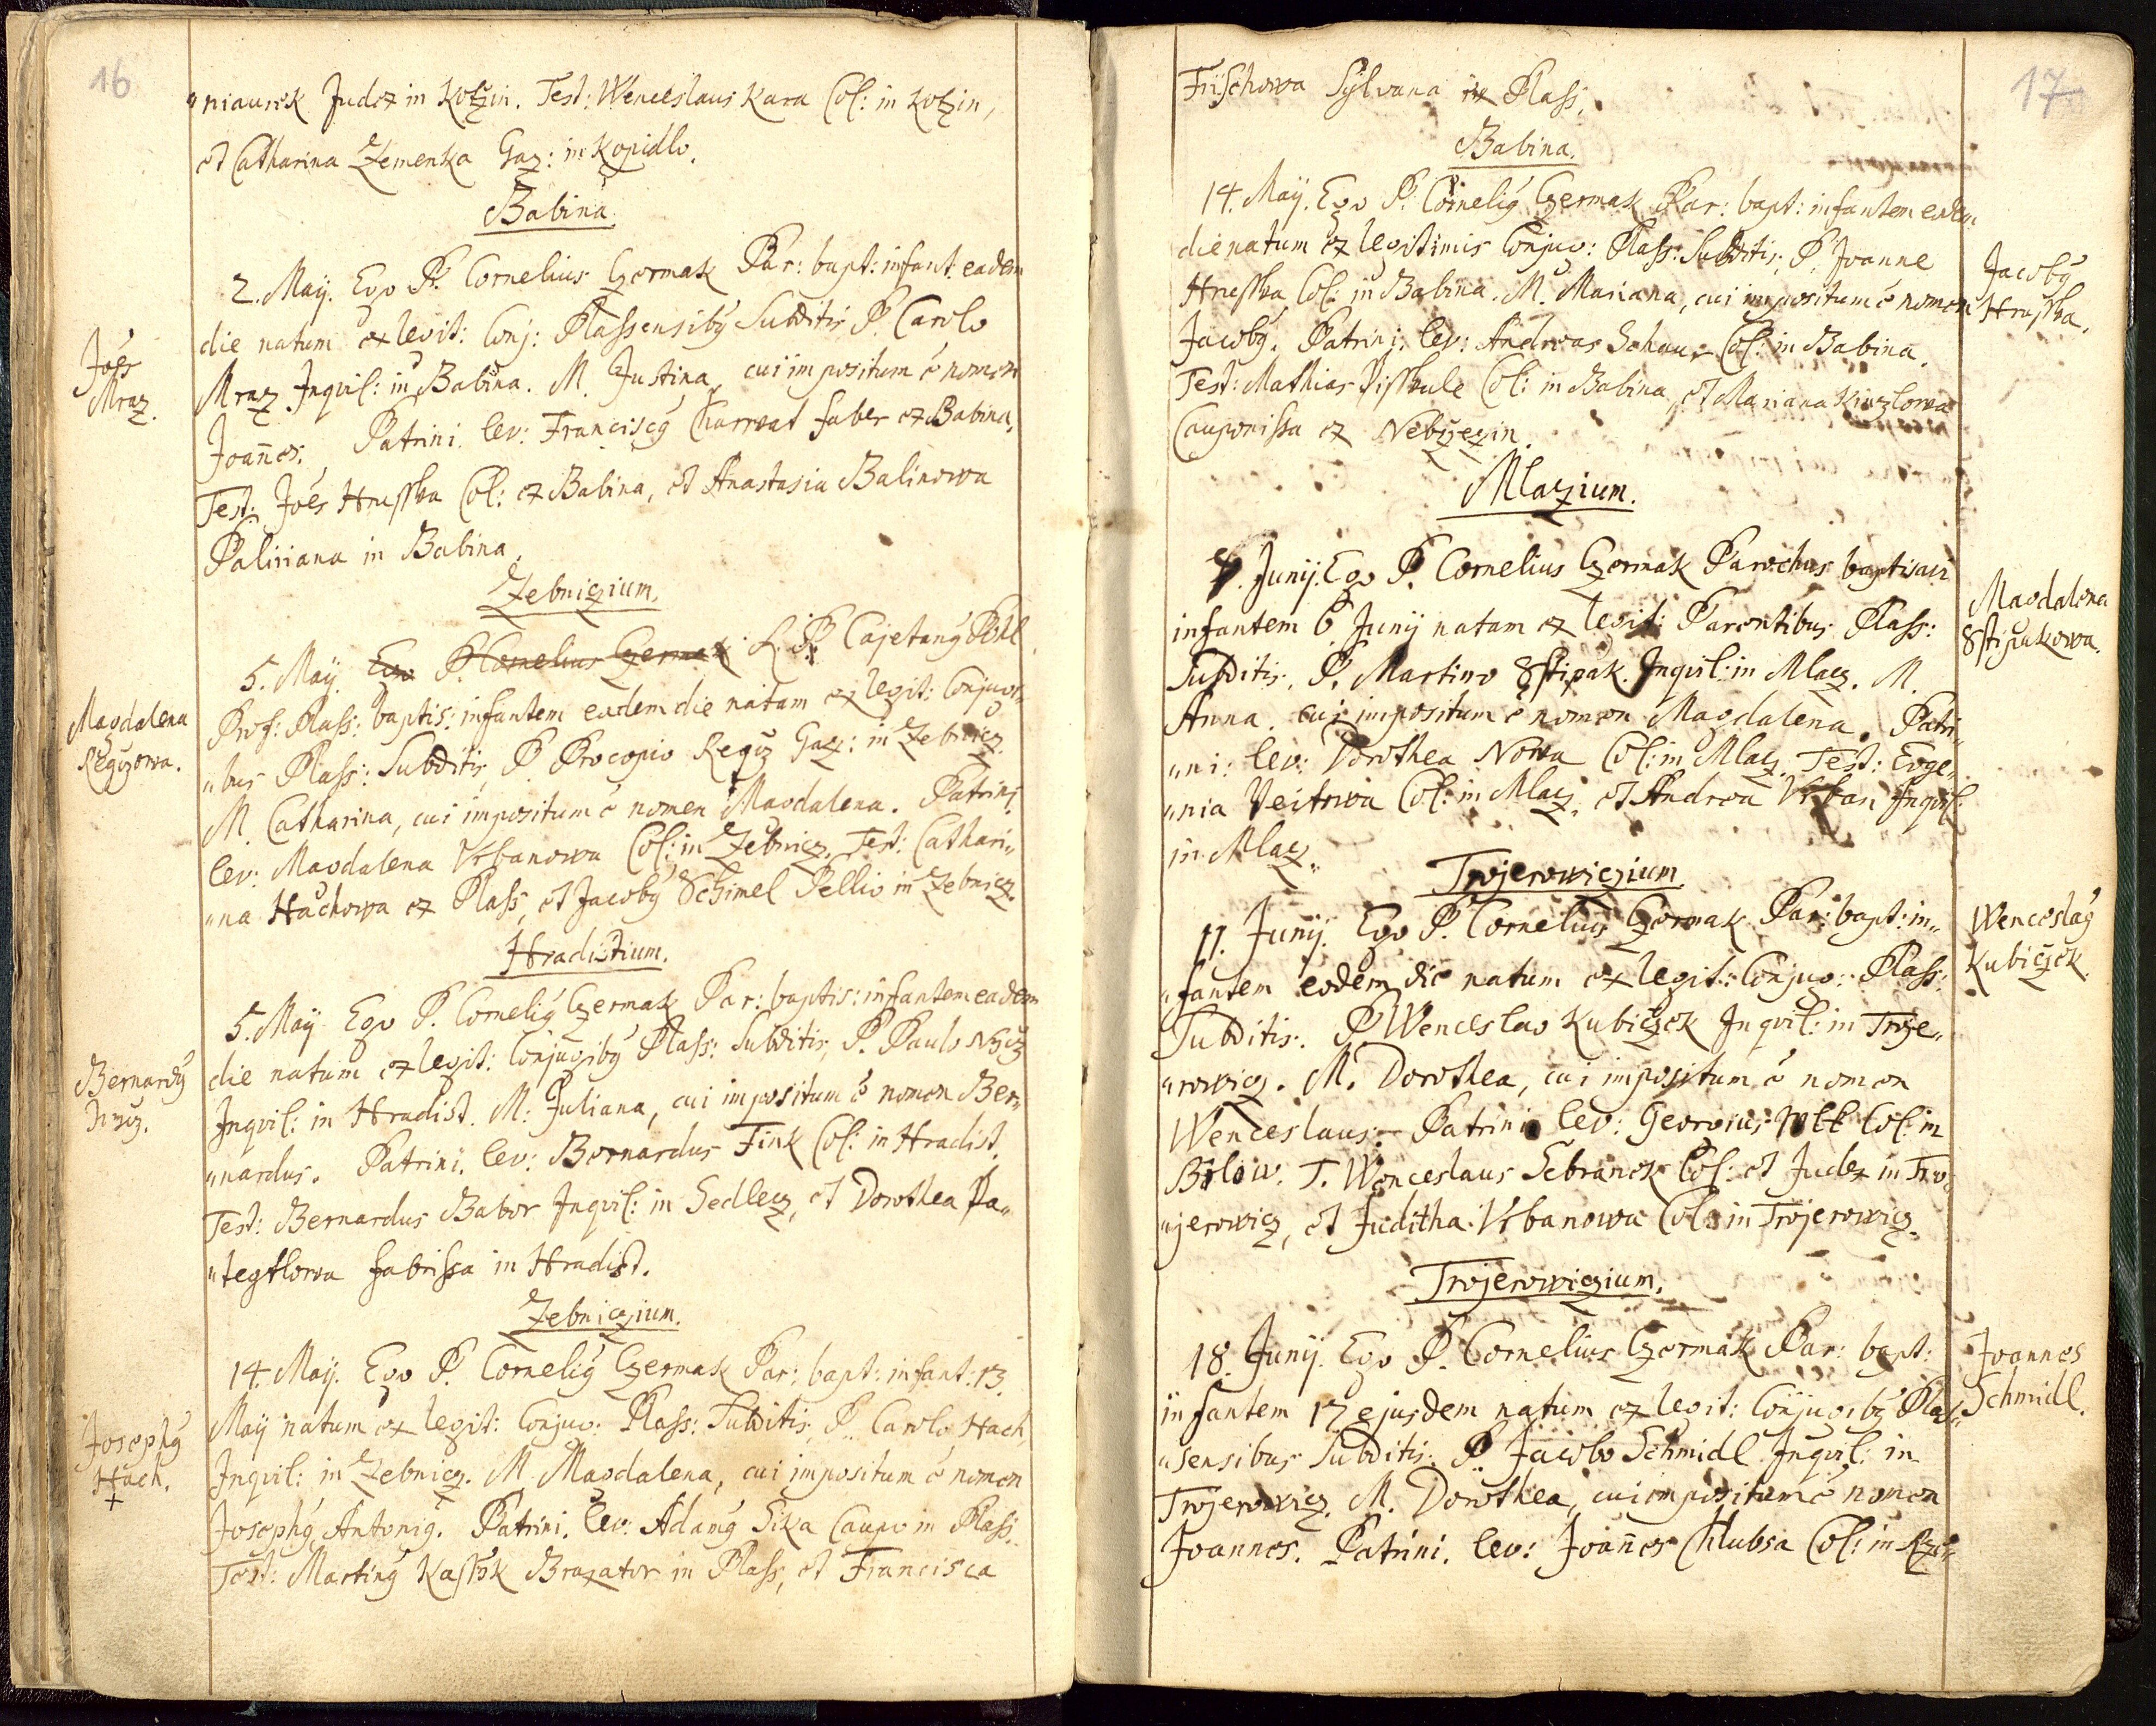 16
„niausek Judex in Kotzin. Test: Wenceslaus Kara Col: in Kotzin,
et Catharina Zemenka Gaz: in Kopidlo.
Babina.
2. Maij. Ego P. Cornelius Czermak Par: bapt: infant: eadem
die natum ex legit: Conj: Plassensibꝰ Subditis P. Carolo
Joẽs
Mraz.
Mraz Inqvil: in Babina. M. Justina, cui impositum ẽ nomen
Joan̄es. Patrini. lev: Franciscꝰ Charvat faber ex Babina,
Test: Joẽs Hrusska Col: ex Babina, et Anastasia Balinowa
Paliriana in Babina.
Zebniczium.
5. Maij. Ego P. Cornelius Czermak L. P. Cajetanꝰ Pohl
Magdalena
Reguzowa.
Prof: Plass: baptis: infantem eadem die natam ex legit: Conjugi„
„bus Plass: Subditis, P. Procopio Reguz Gaz: in Zebnicz.
M. Catharina, cui impositum ẽ nomen Magdalena. Patrini.
lev: Magdalena Vrbanowa Col: in Zebnicz. Test: Cathari„
„na Hachowa ex Plass, et Jacobꝰ Schimel Pellio in Zebnicz.
Hradistium.
5. Maij Ego P. Corneliꝰ Czermak Par: baptis: infantem eadem
Bernardꝰ
die natum ex legit: Conjugibꝰ Plass: Subditis, P. Paulo
Inqvil: in Hradist. M: Juliana, cui impositum ẽ nomen Ber„
„nardus. Patrini. lev: Bernardus Fink Col: in Hradist.
Test: Bernardus Babor Inqvil: in Sedlecz, et Dorothea Pa„
„tegtlowa fabrissa in Hradist.
Zebniczium.
14. Maij. Ego P. Corneliꝰ Czermak Par: bapt: infant: 13.
Josephꝰ
Hach.
+
Maij natum ex legit: Conjug: Plass: Subditis, P. Carolo Hach,
Inqvil: in Zebnicz. M. Magdalena, cui impositum ẽ nomen
Josephꝰ Antoniꝰ. Patrini. lev: Adamꝰ Sika Caupo in Plass.
Test: Martinꝰ Kassek Braxator in Plass, et Francisca
17
Frischowa Sylvana in Plass.
Babina.
14. Maij. Ego P. Corneliꝰ Czermak Par: bapt: infantem eadem
die natum ex legitimis Conjug: Plass: Subditis, P. Joanne
Jacobꝰ
Hrusska.
Hrusska Col: in Babina. M. Mariana, cui impositum ẽ nomen
Jacobꝰ. Patrini. lev: Andreas Schaur Col: in Babina.
Test: Mathias Pisskule Col: in Babina, et Mariana Kinzlowa
Cauponissa ex Nebrzezin.
Mlazium.
7. Junij. Ego P. Cornelius Czermak Parochus baptisavi
Magdalena
Sstipakowa.
infantem 6 Junij natam ex legit: Parentibus Plass:
Subditis, P. Martino Sstipak Inqvil: in Mlacz. M.
Anna. cui impositum ẽ nomen Magdalena. Patri„
„ni: lev: Dorothea Nowa Col: in Mlacz. Test: Euge„
„nia Veitowa Col: in Mlacz, et Andreas Vrban Inqvil:
in Mlacz.
Trojerowiczium.
11. Junij. Ego P. Cornelius Czermak Par: bapt: in„
Wenceslaꝰ
Kubiczek.
„fantem eodem die natum ex legit: Conjug: Plass:
Subditis. P. Wenceslao Kubiczek Inqvil: in Troje„
„rowicz. M. Dorothea, cui impositum ẽ nomen
Wenceslaus. Patrini lev: Georgius Col: in
Bilow. T. Wenceslaus Sebranek Col: et Judex in Tro„
„jerowicz, et Juditha Vrbanowa Col: in Trojerowicz.
Trojerowiczium.
18. Junij. Ego P. Cornelius Czermak Par: bapt:
Joannes
Schmidl.
infantem 17 ejusdem natum ex legit: Conjugibꝰ Plas„
„sensibus Subditis. P. Jacobo Schmidl Inqvil: in
Trojerowicz. M. Dorothea, cui impositum ẽ nomen
Joannes. Patrini. lev: Joan̄es Chlubsa Col: in